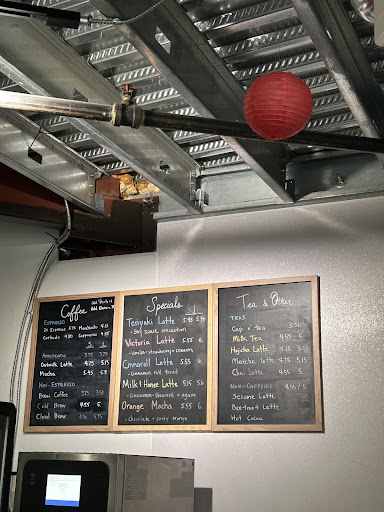 Coffee
Add
ESPRESSO
2x Espresso 3.75 Macchiato 4.25
Cortado 4.50 Cappuccino 4.55
Americano 3.75 3.75
Oatmilk Latte 4.75 5.15
Mocha 5.45 5.8
NON-ESPRESSO
Brew Coffee 3.25 3.5
Cold Brew 4.55 5
Cloud Brew 5.75
Specials
S L
Teriyaki Latte 5.45 5.90
- Soy sauce concoction
Victoria Latte 5.55 6
- vanilla + strawberry + cinnamon
Cinnaroll Latte 5.55 6
- cinnamon roll treat
Milk & Honee Latte 5.15 5.6
- cinnamon-steamed + agave
Orange Mocha 5.55 6
- chocolate + zesty orange
Tea & Other
TEAS
Cup o' tea 3.50
Milk Tea 4.55 5
Hojicha Latte 4.75 5.15
Matcha Latte 4.75 5.15
Chai Latte 4.55 5
NON-CAFFEINE 4.55/5
Sesame Latte
Beetroot Latte
Hot Cocoa